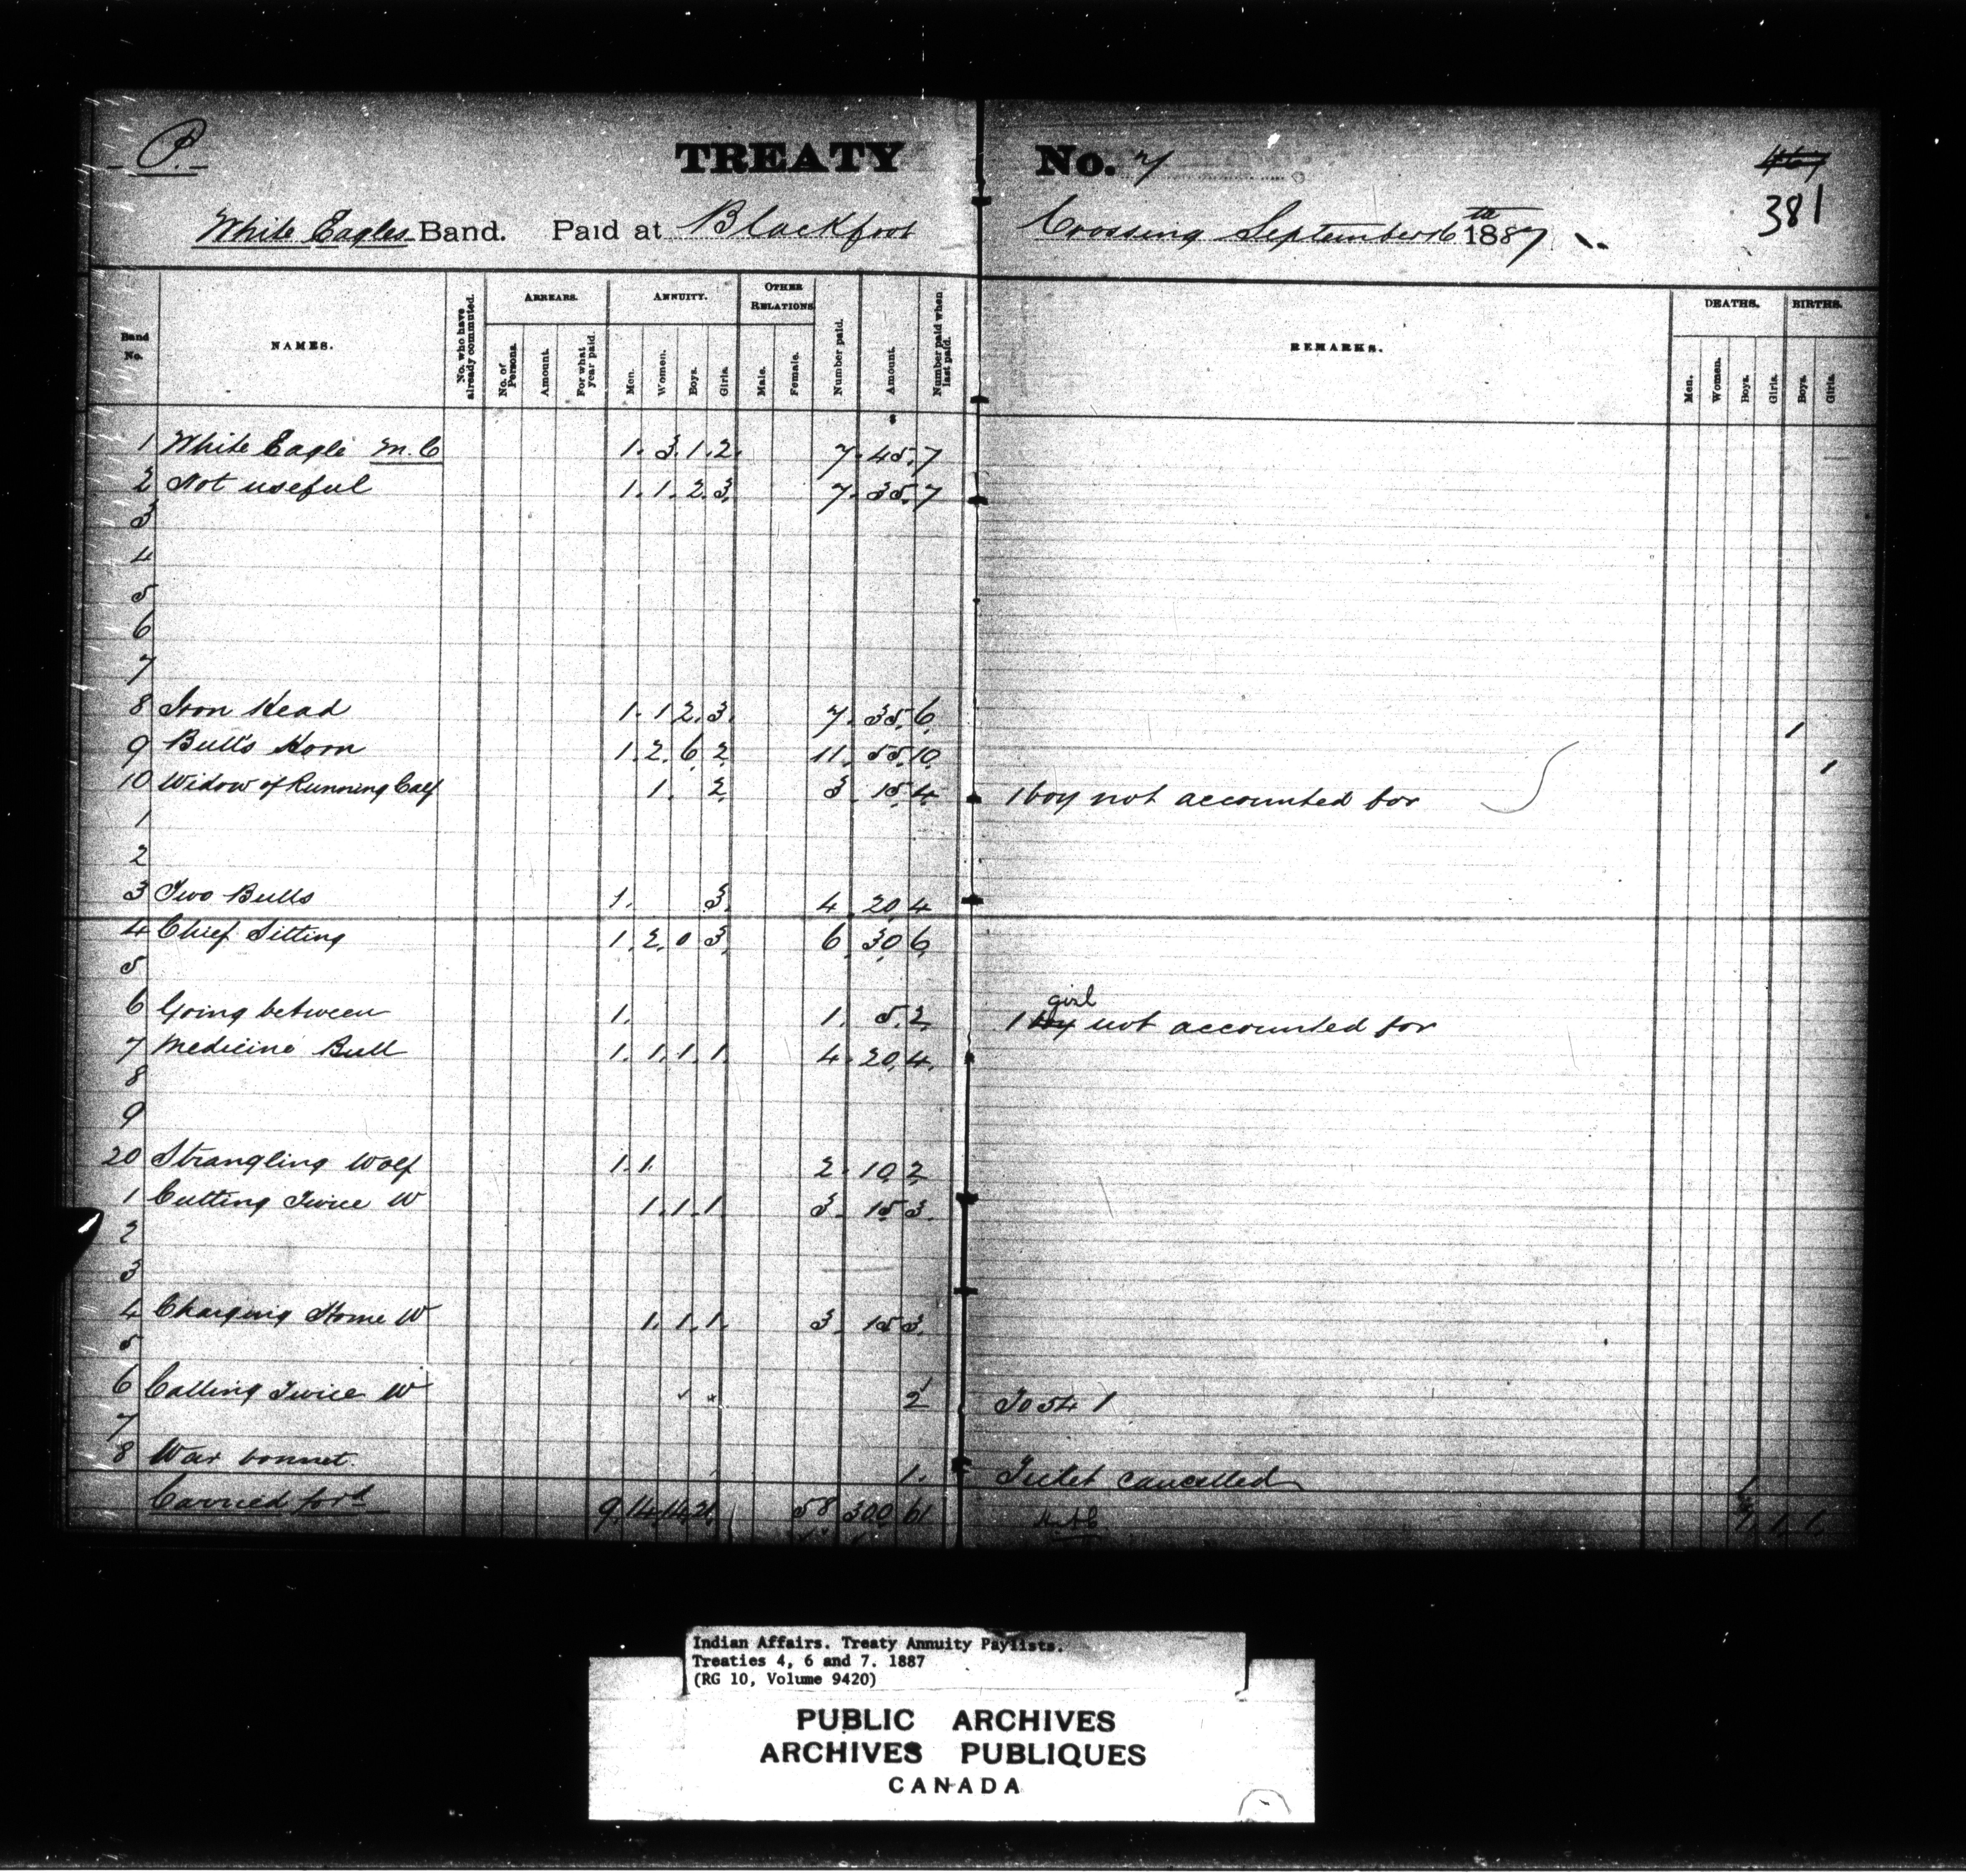 P.
TREATY No. 7
381
White Eagles Band. Paid at Blackfoot Crossing September 16th 1887
Band No. NAMES. No. who have already commuted. ARREARS. No. of Persons. Amount. For what year paid. ANNUITY. Men. Women. Boys. Girls. OTHER RELATIONS Male. Female. Number paid. Amount. Number paid when last paid. REMARKS. DEATHS. Men. Women. Boys. Girls. BIRTHS. Boys. Girls.
$
1 White Eagle M.C 1. 3. 1. 2. 7. 45. 7
2 Not useful 1. 1. 2. 3. 7. 35. 7
3
4
5
6
7
8 Iron Head 1. 1 2. 3. 7. 35. 6. 1
9 Bull's Horn 1. 2. 6. 2. 11. 55. 10. 1
10 Widow of Running Calf 1. 2. 3. 15. 4. 1 boy not accounted for
1
2
3 Two Bulls 1. 3. 4. 20. 4
4 Chief Sitting 1. 2. 0 3. 6. 30. 6.
5
6 Going between 1. 1. 5. 2. 1 boy girl not accounted for
7 Medicine Bull 1. 1. 1. 1. 4. 20. 4.
8
9
20 Strangling Wolf 1. 1. 2. 10. 2.
1 Cutting Twice W 1. 1. 1. 3. 15. 3.
2
3
4 Charging Home W 1. 1. 1. 3. 15. 3.
5
6 Calling Twice W 2 To 54 1
7
8 War bonnet. 1. Ticket cancelled
Carried ford 9. 14. 14. 21. 58 300 61 1. 1.
Indian Affairs. Treaty Annuity Paylists.
Treaties 4, 6 and 7. 1887
(RG 10, Volume 9420)
PUBLIC ARCHIVES
ARCHIVES PUBLIQUES
CANADA